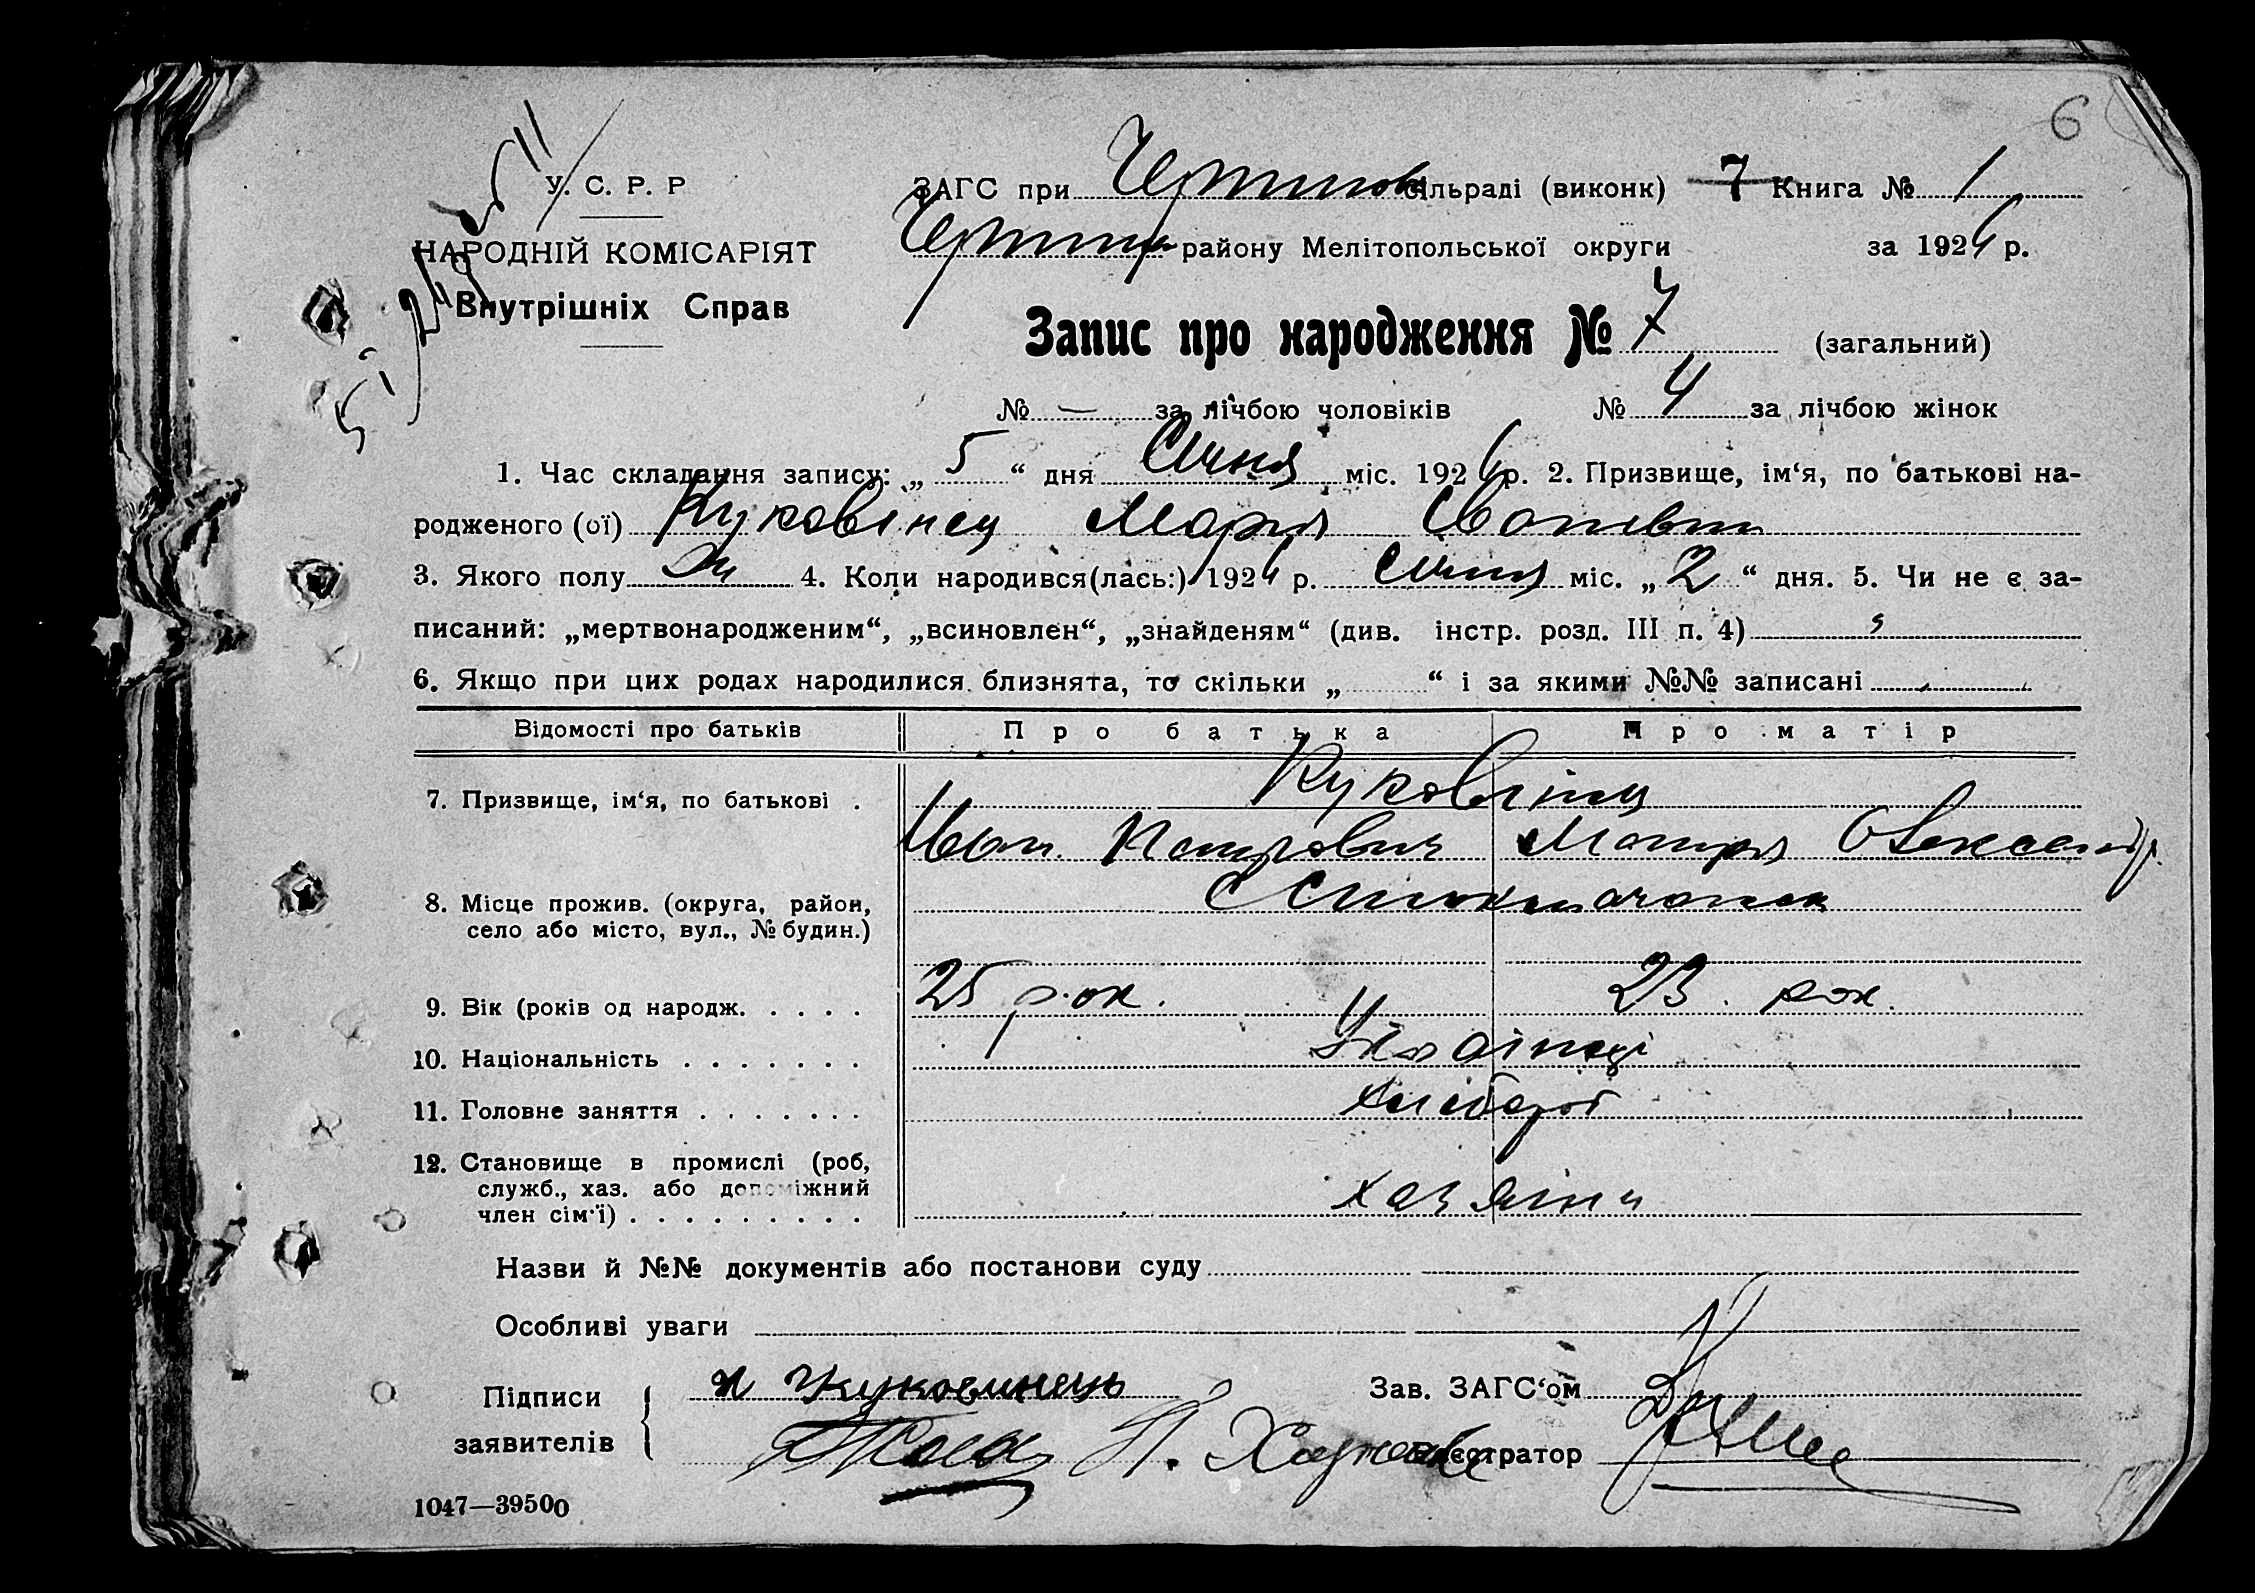 6
У. С. Р. Р
НАРОДНІЙ КОМІСАРІЯТ
Внутрішніх Справ
ЗАГС при сільраді (виконк) 7 Книга № 1
району Мелітопольської округи за 1926 р.
Запис про народження № 7 (загальний)
№ — за лічбою чоловіків № 4 за лічбою жінок
1. Час складання запису: „ 5 “ дня Січня міс. 1926 р. 2. Призвище, ім‘я, по батькові на-
родженого (ої) Куковінец Марія Іванівна
3. Якого полу 4. Коли народився(лась:) 1926 р. січня міс. „ 2 “ дня. 5. Чи не є за-
писаний: „мертвонародженим“, „всиновлен“, „знайденям“ (див. інстр. розд. III п. 4)
6. Якщо при цих родах народилися близнята, то скільки „ “ і за якими №№ записані
Відомості про батьків Про батька Про матір
7. Призвище, ім‘я, по батькові . Куковінец
Іван Петрович Мотря Олександр.
8. Місце прожив. (округа, район,
село або місто, вул., № будин.)
9. Вік (років од народж. . . . . 25 рок. 23 рок.
10. Національність . . . . . . . Українці
11. Головне заняття . . . . . . . хлібороб
12. Становище в промислі (роб,
служб., хаз. або допоміжний
член сім‘ї) . . . . . . . . . хазяіни
Назви й №№ документів або постанови суду
Особливі уваги
Підписи Зав. ЗАГС‘ом
заявителів Реєстратор
1047—39500